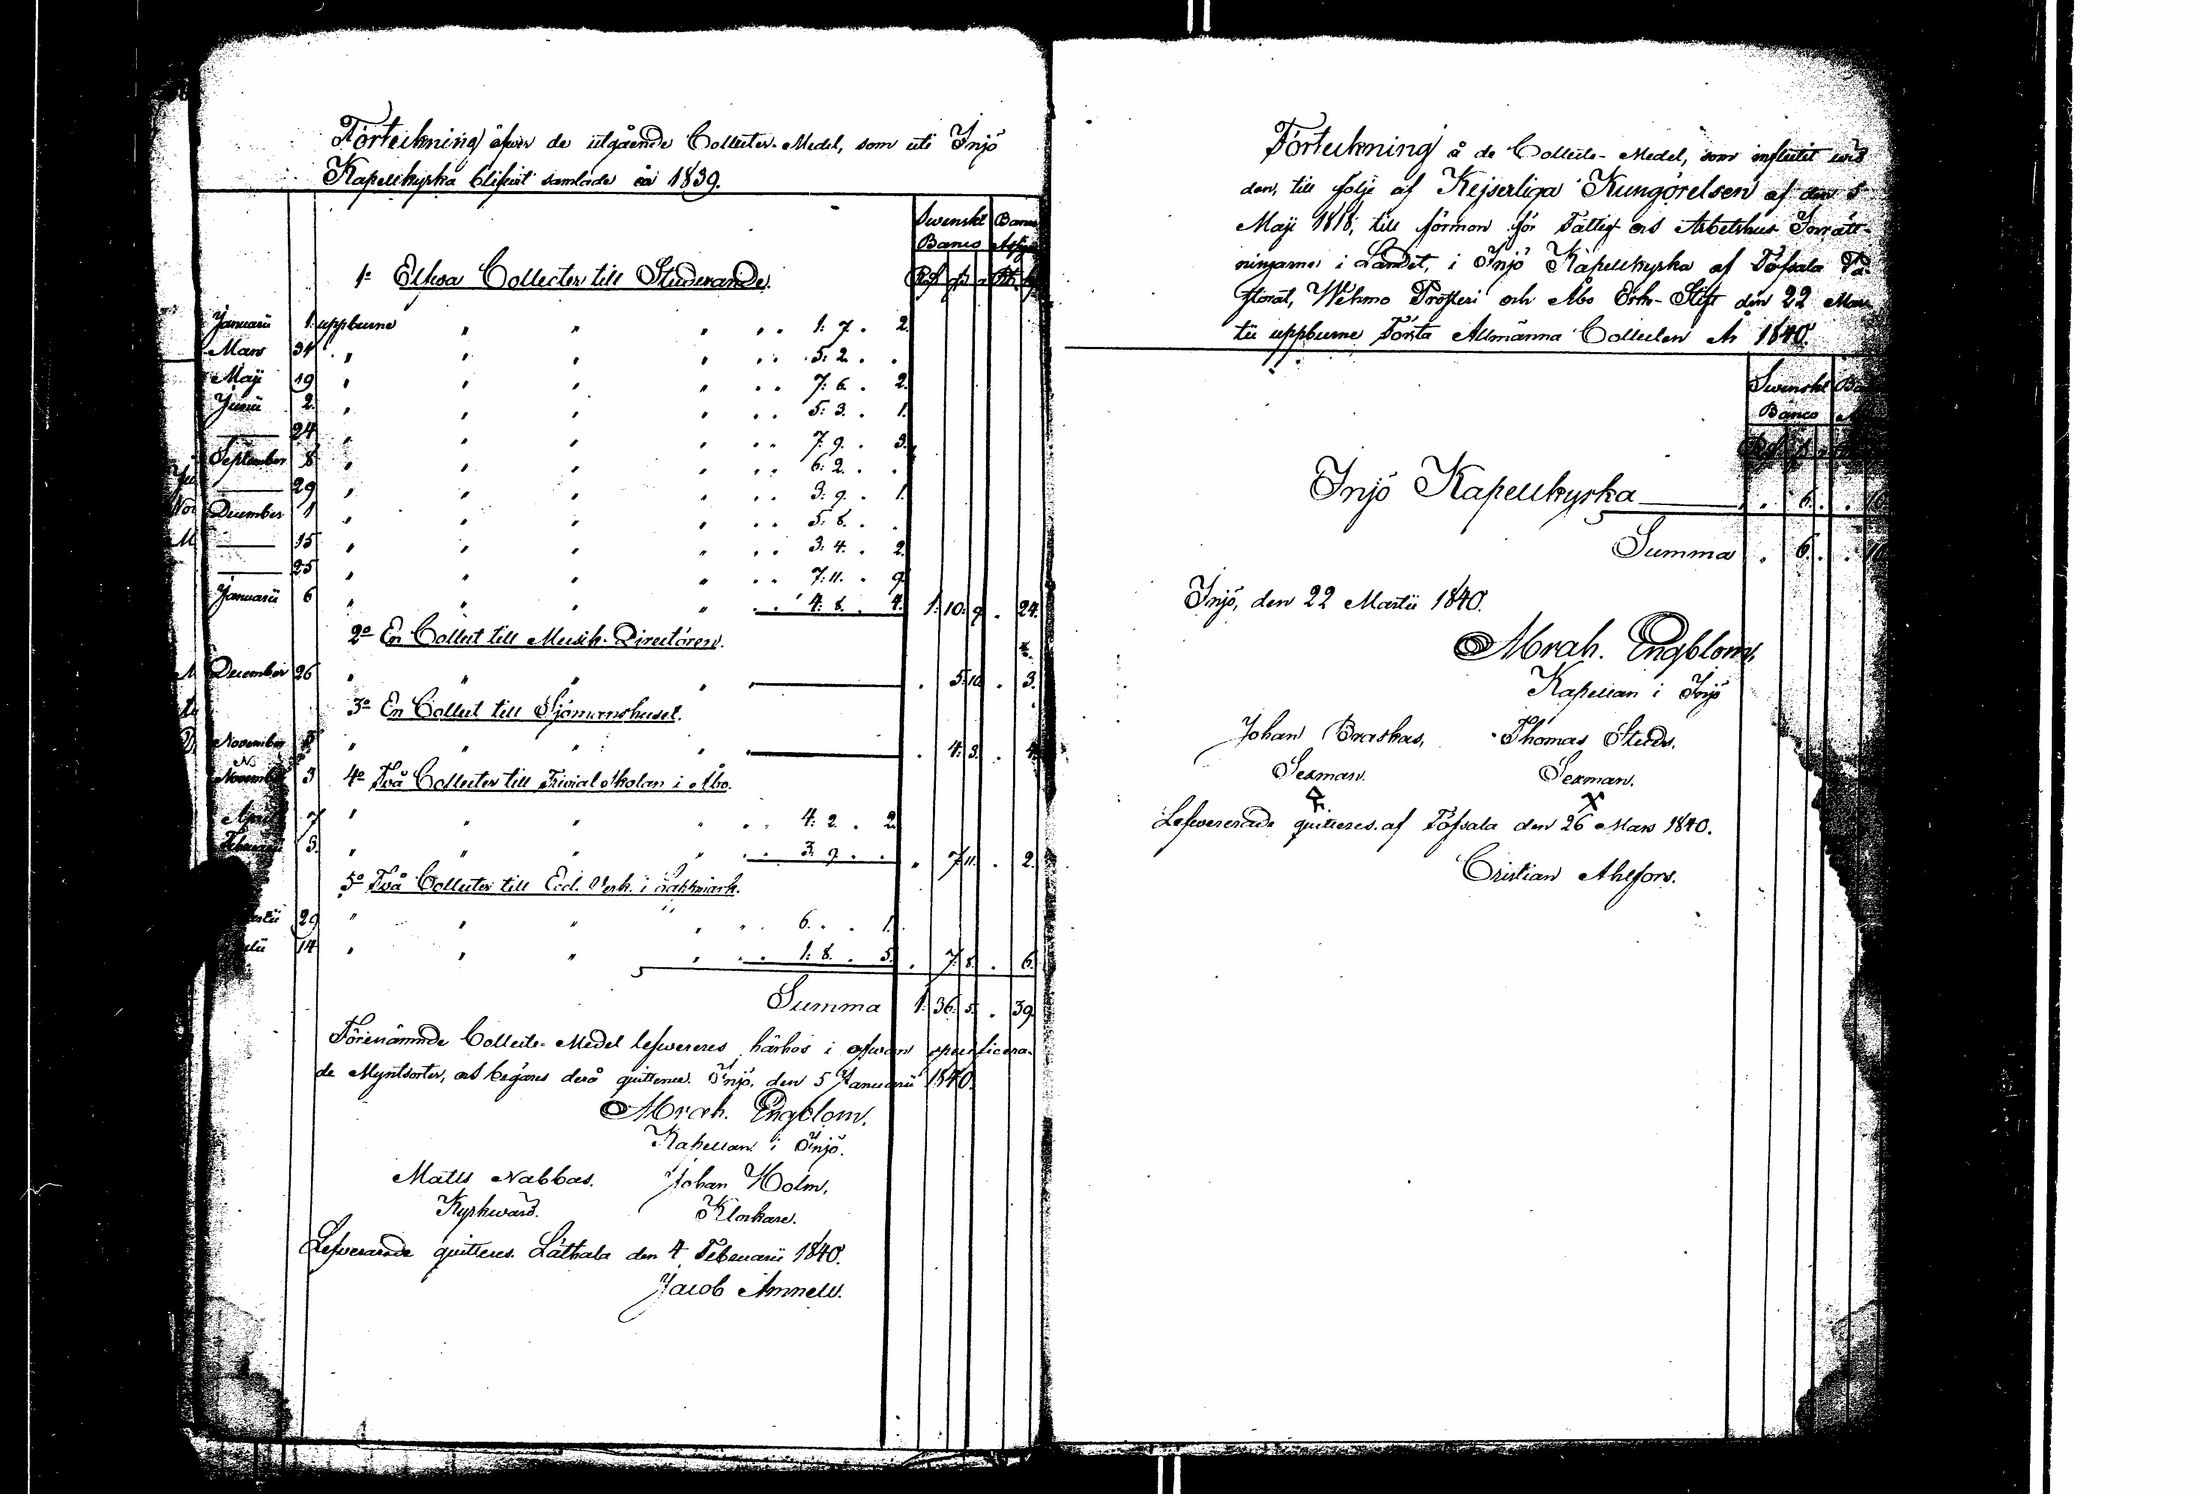 Förteckning öfver de utgående Collecter-Medel, som uti Injö
Kapellkyrka blifvit samlade år 1839.
Swenskt Banco
Banco Assign.
1o Elfva Collecter till Studerande.
Januarii 1 uppburne " " " . . 1: 7. 2.
Mars 31 " " " " . . 5: 2. .
Maji 19 " " " " . . 7: 6. 2.
Junii 2. " " " " . . 5: 3. 1.
—— 24 " " " " . . 7: 9. 3.
September 8 " " " " . . 6: 2. .
—— 29 " " " " . . 3: 9. 1.
December 1 " " " " . . 5: 8. .
—— 15 " " " " . . 3: 4. 2.
—— 25 " " " " . . 7: 11. 9.
Januarii 6 " " " " . . 4: 8. 4. 1: 10: 9 . 24.
2o En Collect till Musik-Directören.
December 26 " " " " —— . 5: 10 . 3.
3o En Collect till Sjömanshuset.
November 3 " " " " —— . 4: 3. . 4.
November 3 4o Två Collecter till Trivial skolan i Åbo.
April 7 " " " " . . 4: 2. 2
Februarii 3. " " " " . . 3: 9. . . 7: 11. . 2.
5o Två Collecter till Eccl. Verk. i Lappmark.
29 " " " " . 6. . 1.
14 " " " " . . 1: 8. 5. . 7: 8. . 6.
Summa 1: 36: 5. . 39.
Förenämnde Collecte-Medel lefwereres härhos i ofwan specificera-
de Myntsorter, och begäres derå quittence. Injö, den 5 Januarii 1840.
Abrah. Engblom.
Kapellan i Injö.
Matts Nabbas. Johan Holm.
Kyrkwärd. Klockare.
Lefvererade quitteres. Låthala den 4 Februarii 1840.
Jacob Amnell.
Förteckning å de Collecte-Medel, som influtit wid
den, till följe af Kejserliga Kungörelsen af den 5
Maji 1818, till förmon för Fattig- och Arbetshus-Inrätt-
ningarne i Landet, i Injö Kapellkyrka af Töfsala Pa-
storat, Wehmo Prosteri och Åbo Erke-Stift den 22 Mar-
tii uppburne Första Allmänna Collecten År 1840.
Swenskt Banco
Injö Kapellkyrka —— . 6. . . 10
Summa . 6. . . 10
Injö, den 22 Martii 1840.
Abrah. Engblom.
Kapellan i Injö
Johan Braskas, Thomas Studs.
Sexman. Sexman.
Lefvererade quitteres. af Töfsala den 26 Mars 1840.
Cristian Ahlfors.